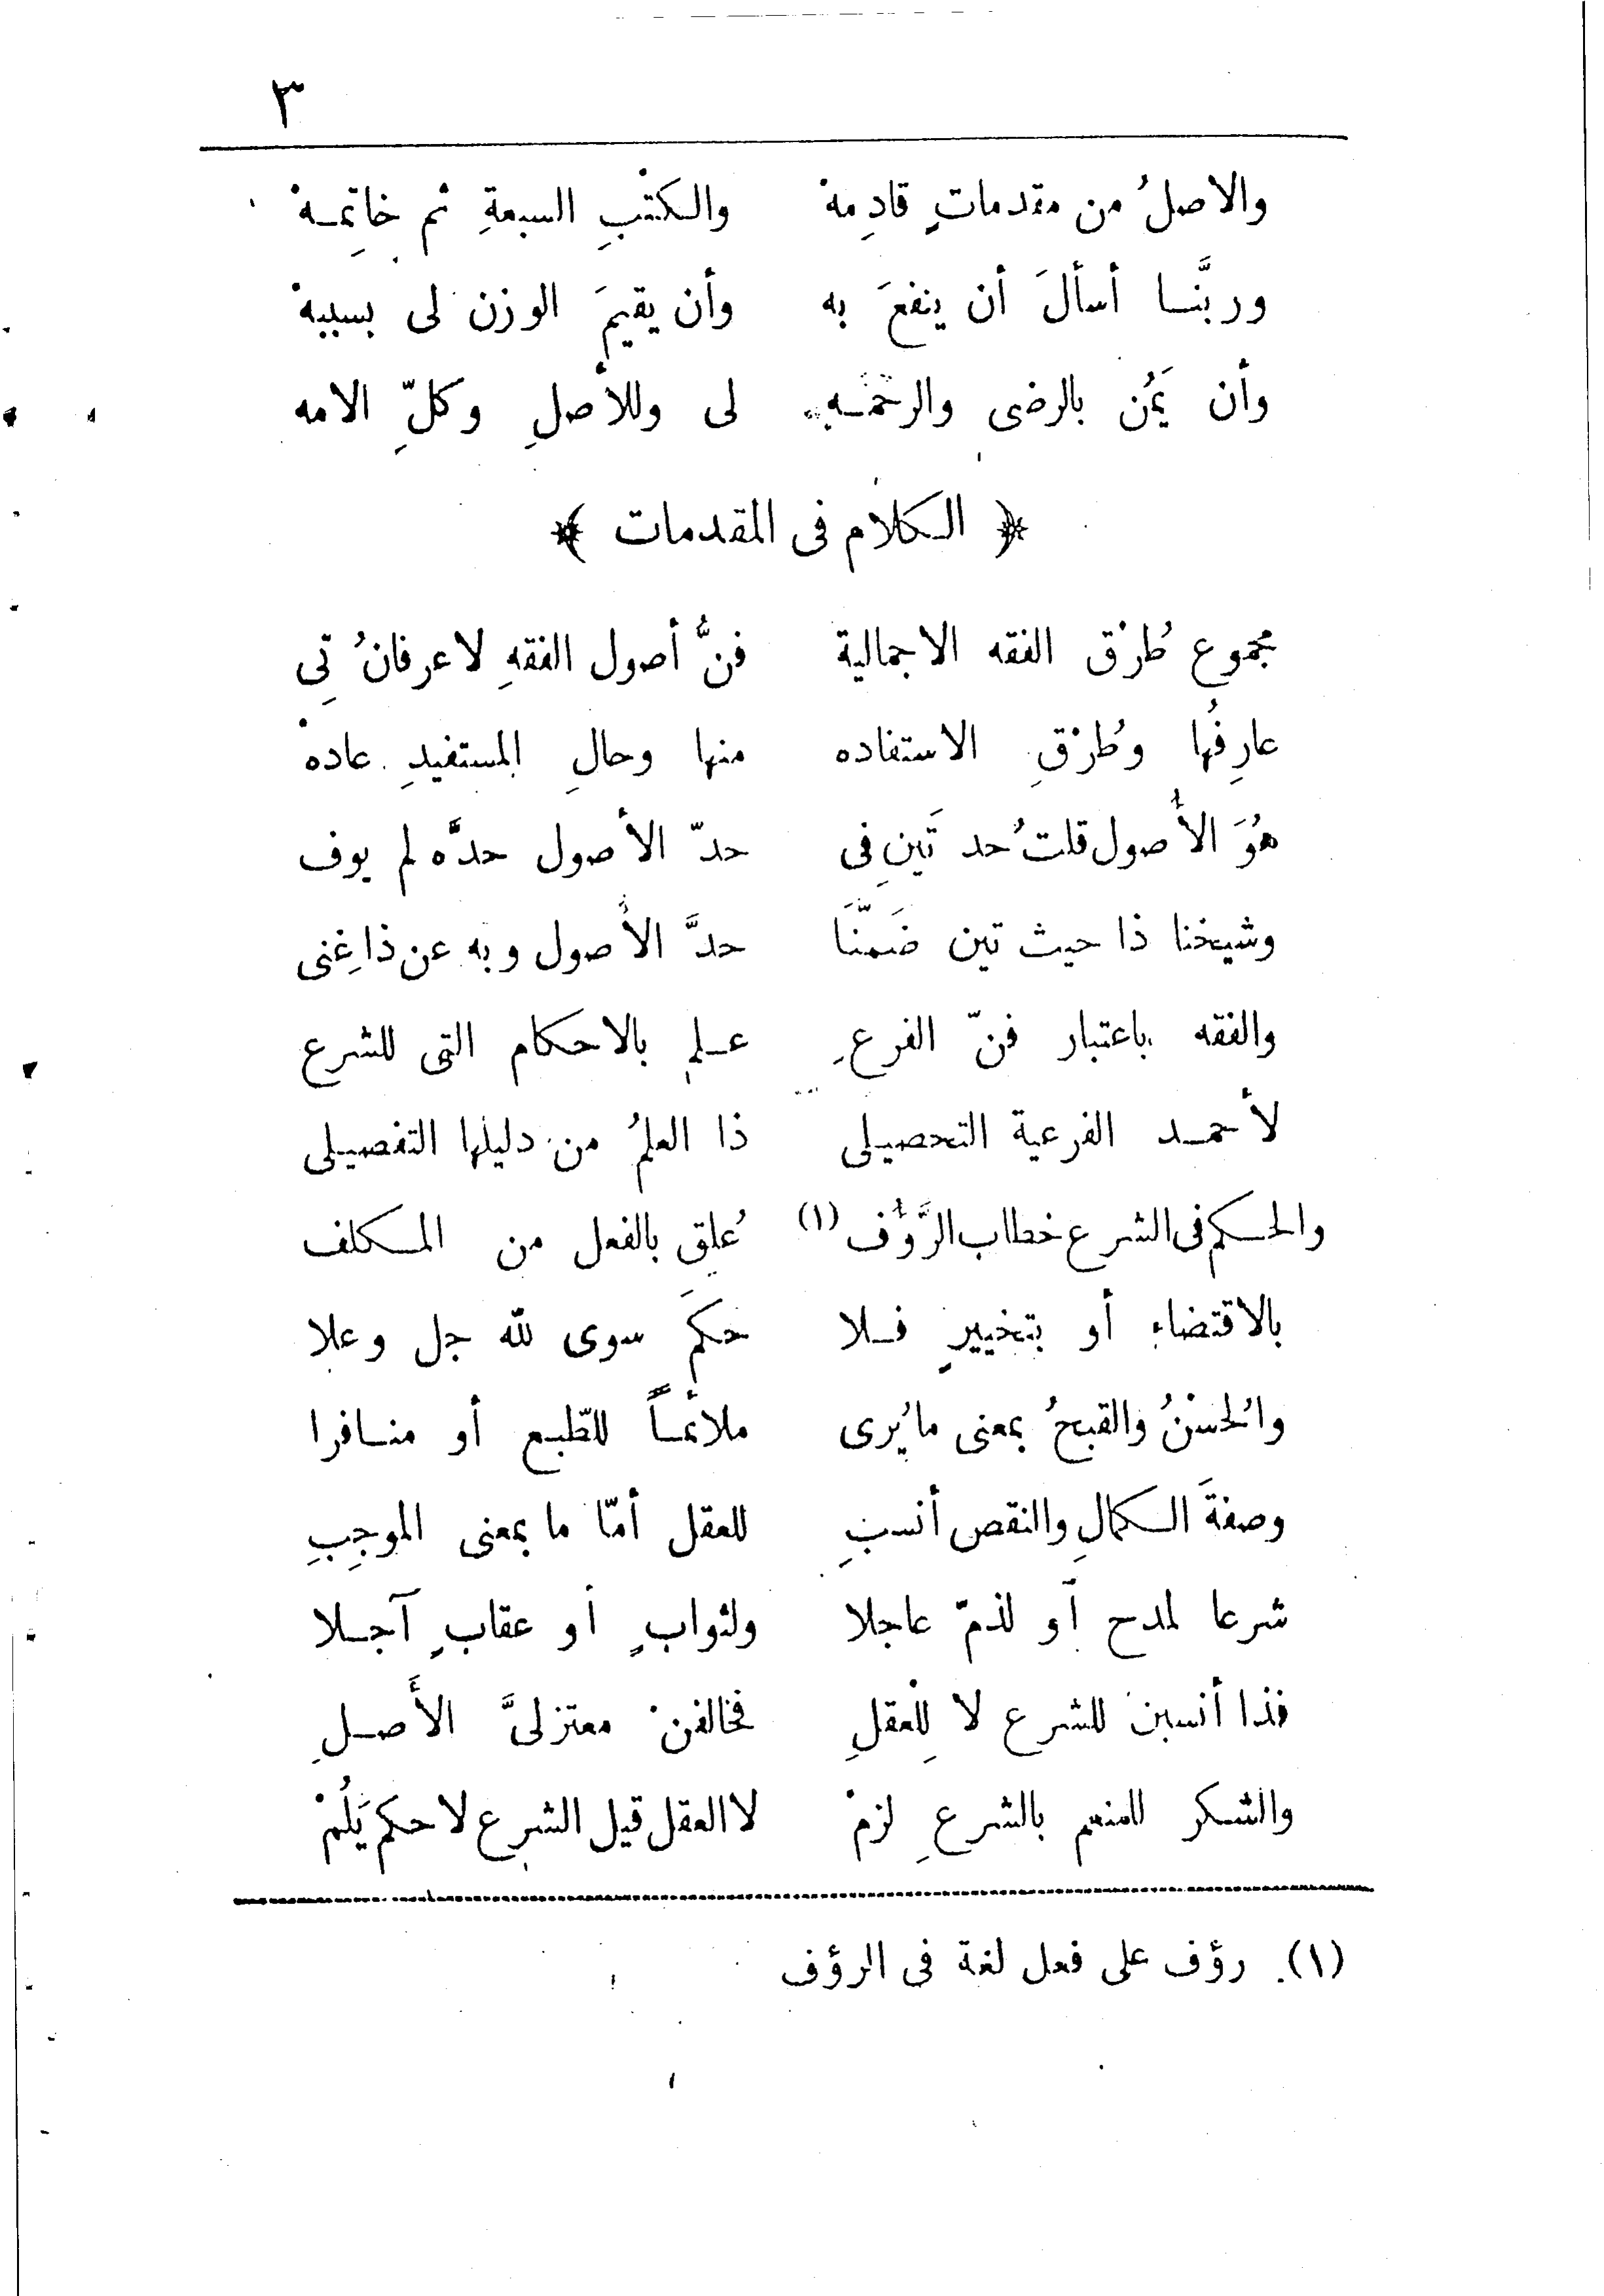 ٣
والاصلُ من مقدماتٍ قادِمهْ والكتْبِ السبعةِ ثم خاتِمـهْ
وربَّنـا أسألَ أن ينفعَ به وأن يقيمَ الوزن لى بسببهْ
وأن يَمُن بالرضى والرحمـه لى وللأصلِ وكلِّ الامه
﴿ الـكلام فى المقدمات ﴾
مجموع طُرْق الفقه الاجمالية فنُّ أصول الفقهِ لا عرفانُ تِى
عارِفُها وطُرْقِ الاستفاده منها وحالِ المستفيدِ عادهْ
هُوَ الأصول قلتُ حد تَينِ فى حدّ الأصول حدَّه لم يوف
وشيخنا ذا حيث تين ضَمَّنَا حدَّ الأصول وبه عن ذا غِنى
والفقه باعتبار فنّ الفرعِ عـلم بالاحكام التى للشرع
لأحمـد الفرعية التحصيلى ذا العلمُ من دليلها التفصيلى
والحـكم فى الشرع خطاب الرَّؤُف (١) عُلِقَ بالفعل من المـكلف
بالاقتضاء أو بتخييرٍ فـلا حكمَ سوى لله جل وعلا
والُحسْنُ والقبحُ بمعنى ما يُرى ملائمـاً للطّبـع أو منـافرا
وصفةَ الـكمالِ والنقص أنسبِ للعقل أمّا ما بمعنى الموجِبِ
شرعا لمدح أو لذمّ عاجلا ولثوابٍ أو عقابٍ آجـلا
فذا أنسبن للشرع لا لِلْعقلِ فخالفنْ معتزلىَّ الأَصـلِ
والشـكر للمنعم بالشرعِ لزمْ لا العقل قبل الشرع لا حكم يَلُمْ
(١). رؤف على فعل لغة فى الرؤف